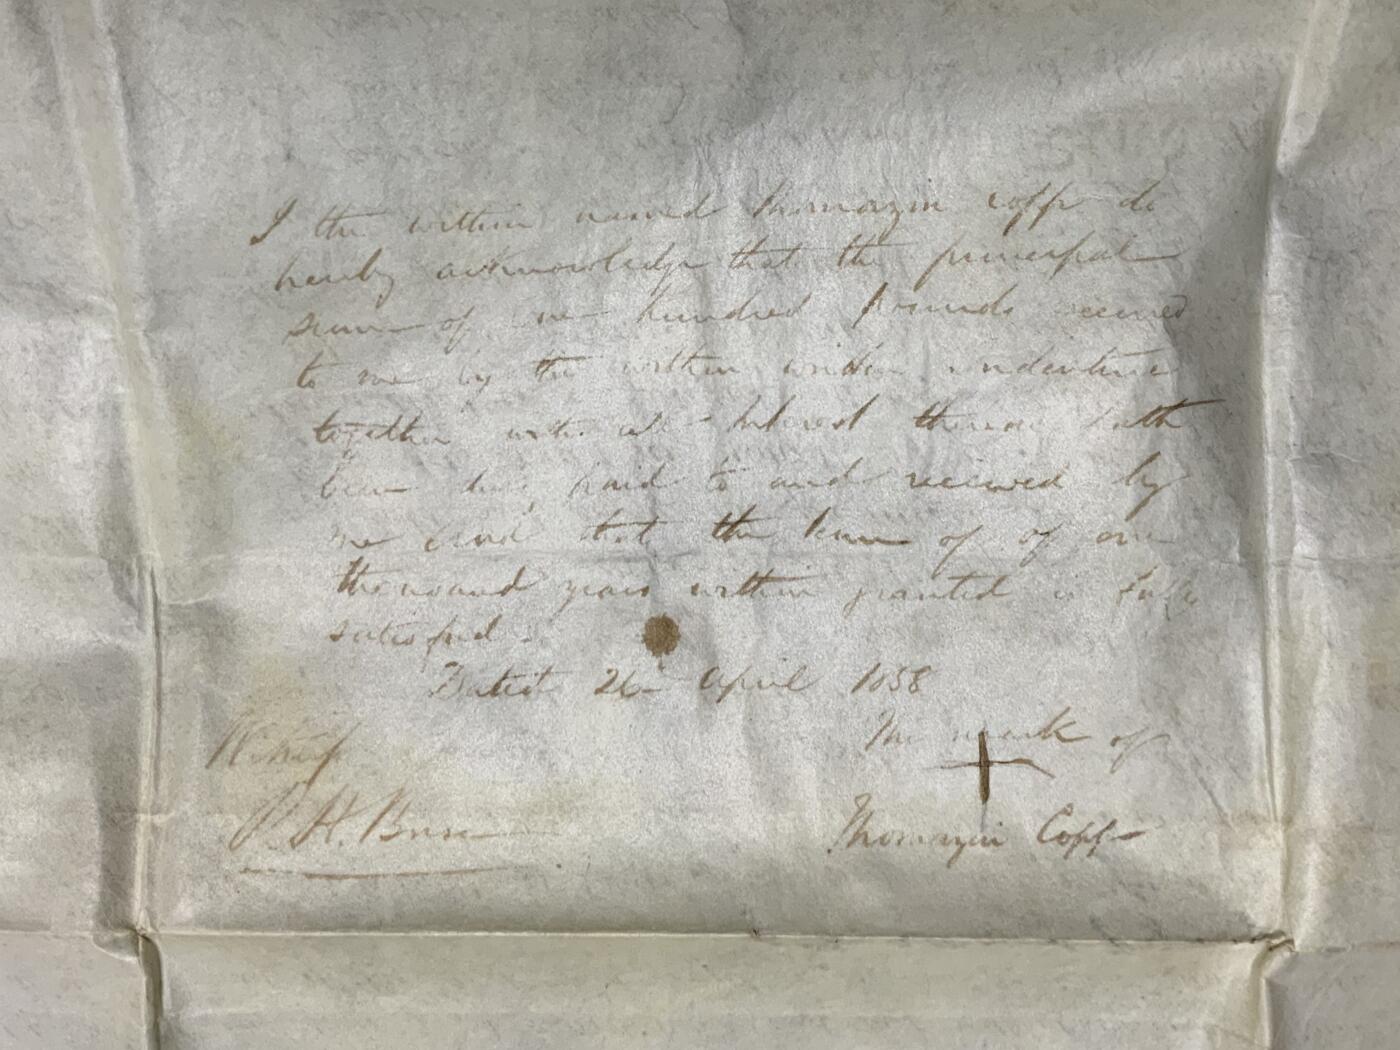 I the within named Thomazin Copp do
hereby acknowledge that the principal
sum of one hundred pounds secured
to me by the within written indenture
together with all interest thereon hath
been duly paid to and received by
me and that the term of of one
thousand years within granted is fully
satisfied.
Dated 26 April 1858
The mark of
Witness
H.
Thomazin Copp